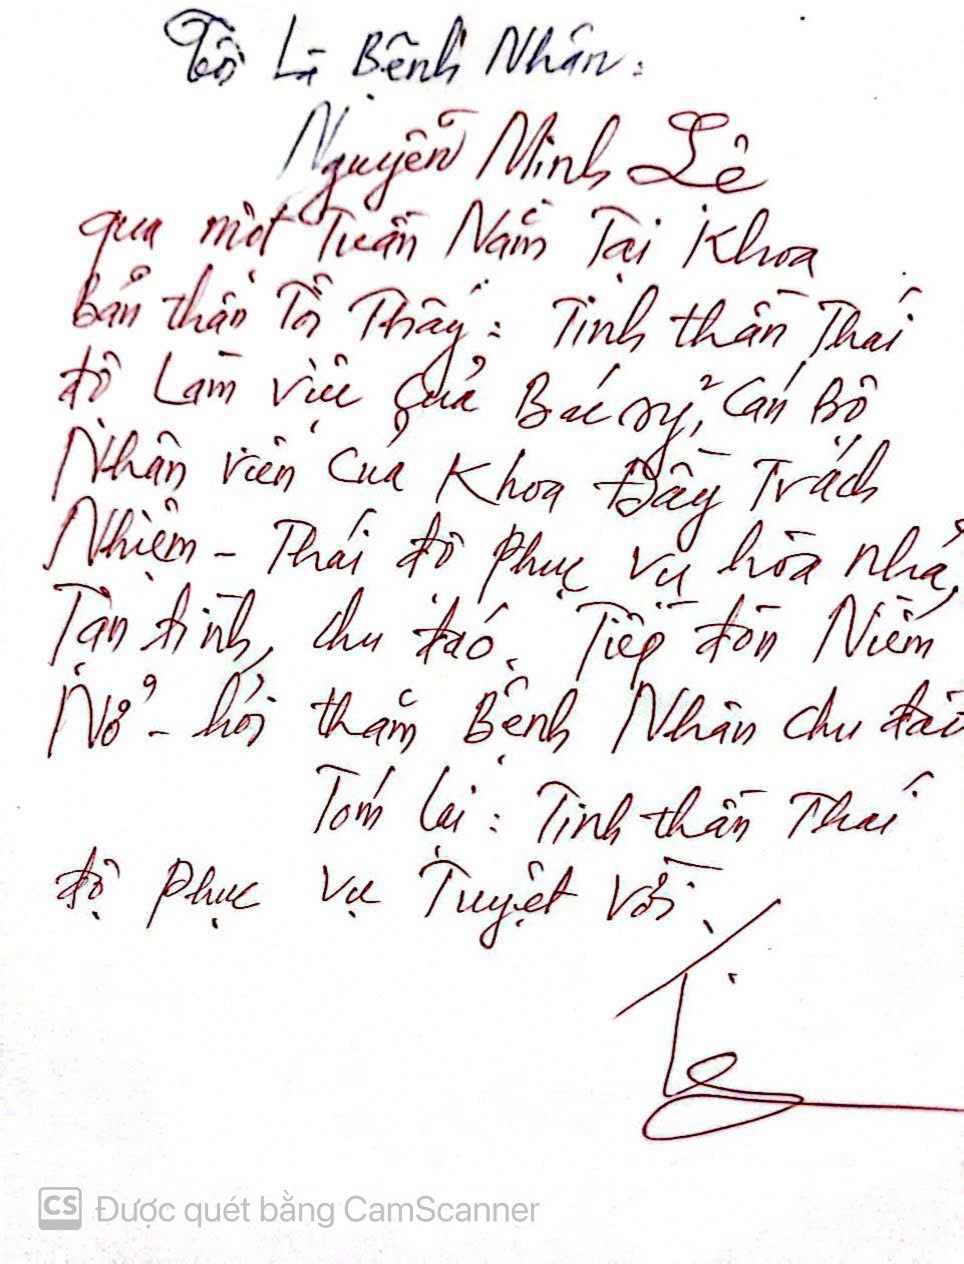 Tôi Là Bệnh Nhân:
Nguyễn Minh Lê
qua một Tuần Nằm Tại Khoa
bản thân Tôi Thấy: Tinh thần Thái
độ Làm việc của Bác sỹ, Cán Bộ
Nhân viên Của Khoa Đầy Trách
Nhiệm - Thái độ phục vụ hòa nhã,
Tận tình, chu đáo. Tiếp đón Niềm
Nở - hỏi thăm Bệnh Nhân chu đáo
Tóm lại: Tinh thần Thái
độ phục vụ Tuyệt vời.
Lê
CS Được quét bằng CamScanner